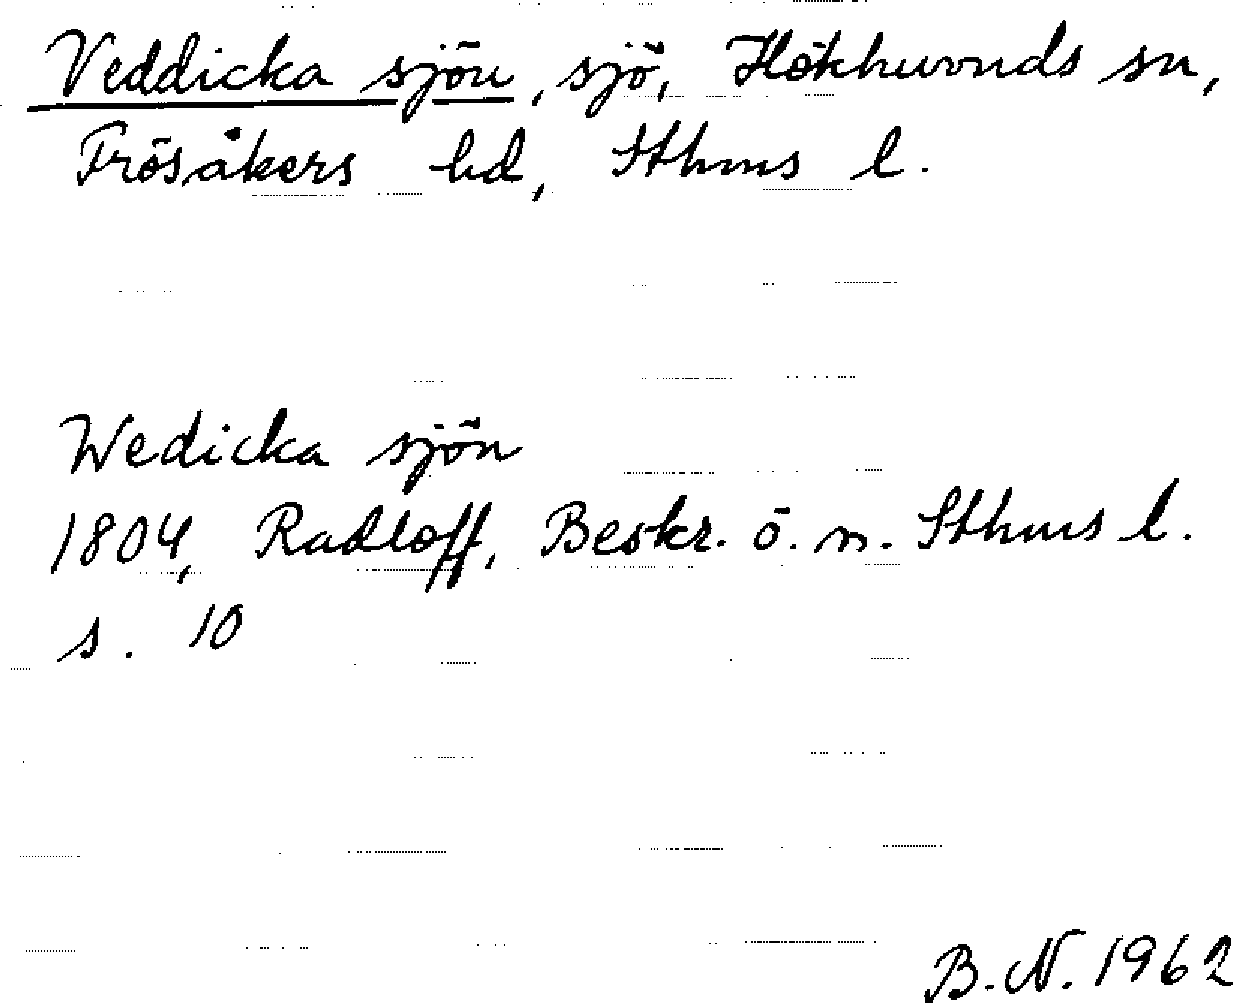 Veddicka sjön, sjö, Hökhuvuds sn,
Frösåkers hd, Sthms l.
Wedicka sjön
1804, Radloff, Beskr. ö. n. Sthms l.
s. 10
B.N. 1962